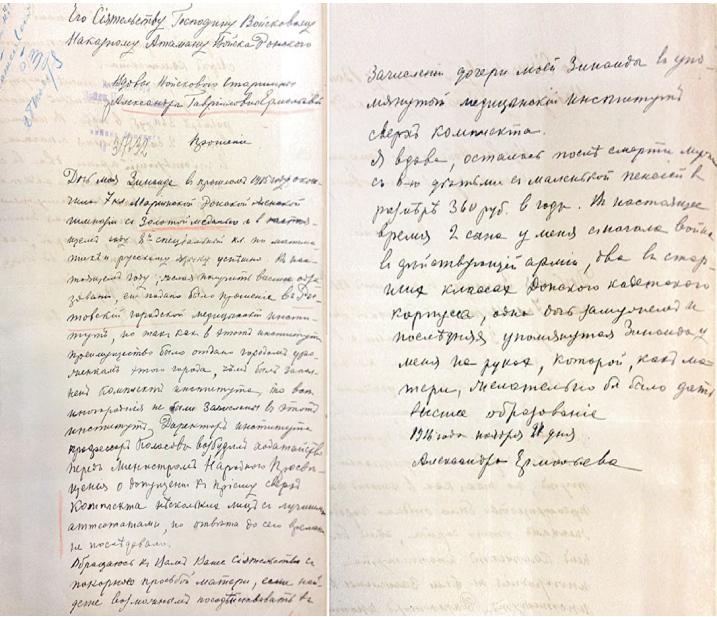 Его Сіятельству Господину Войсковому
Наказному Атаману Войска Донского
Вдовы Войскового Старшины
Александры Гавриловны Ермолаевой
Прошеніе
Дочь моя Зинаида въ прошломъ 1915 году окон-
чила 7 кл. Маріинской Донской женской
гимназіи съ Золотой медалью и въ насто-
ящемъ году 8й спеціальный кл. по матема
тикѣ и русскому языку успѣшно. Въ нас
тоящемъ году, желая получить высшее обра
зованіе, ею подано было прошеніе въ Рос-
товскій городской медицинскій инсти-
тутъ, но такъ какъ въ этотъ институтъ
преимущество было отдано городскимъ уро
женкамъ этого города, коими былъ запол
ненъ комплектъ института, то вот
иногороднія не были зачислены въ этотъ
институтъ. Директоръ института
профессоръ Колосовъ возбудилъ ходатайство
передъ Министромъ Народнаго Просвѣ-
щенія о допущеніи къ пріему сверхъ
комплекта нѣсколькихъ лицъ съ лучшими
аттестатами, но отвѣта до сего времени
не послѣдовало.
Обращаюсь къ Вамъ Ваше Сіятельство съ
покорною просьбой матери, если най
дете возможнымъ посодѣйствовать въ
Зачисленіи дочери моей Зинаиды въ упо-
мянутый медицинскій институтъ
сверхъ комплекта.
Я вдова, осталась послѣ смерти мужа
съ 6-ю дѣтьми съ маленькой пенсіей въ
размѣрѣ 360 руб. въ годъ. Въ настоящее
время 2 сына у меня съ начала войны
въ дѣйствующей арміи, два въ стар
шихъ классахъ Донского кадетского
корпуса, одна дочь замужемъ и
послѣдняя упомянутая Зинаида у
меня на рукахъ, которой, какъ ма
тери, желательно бы было дать
высшее образованіе
1916 года ноября дня
Александра Ермолаева